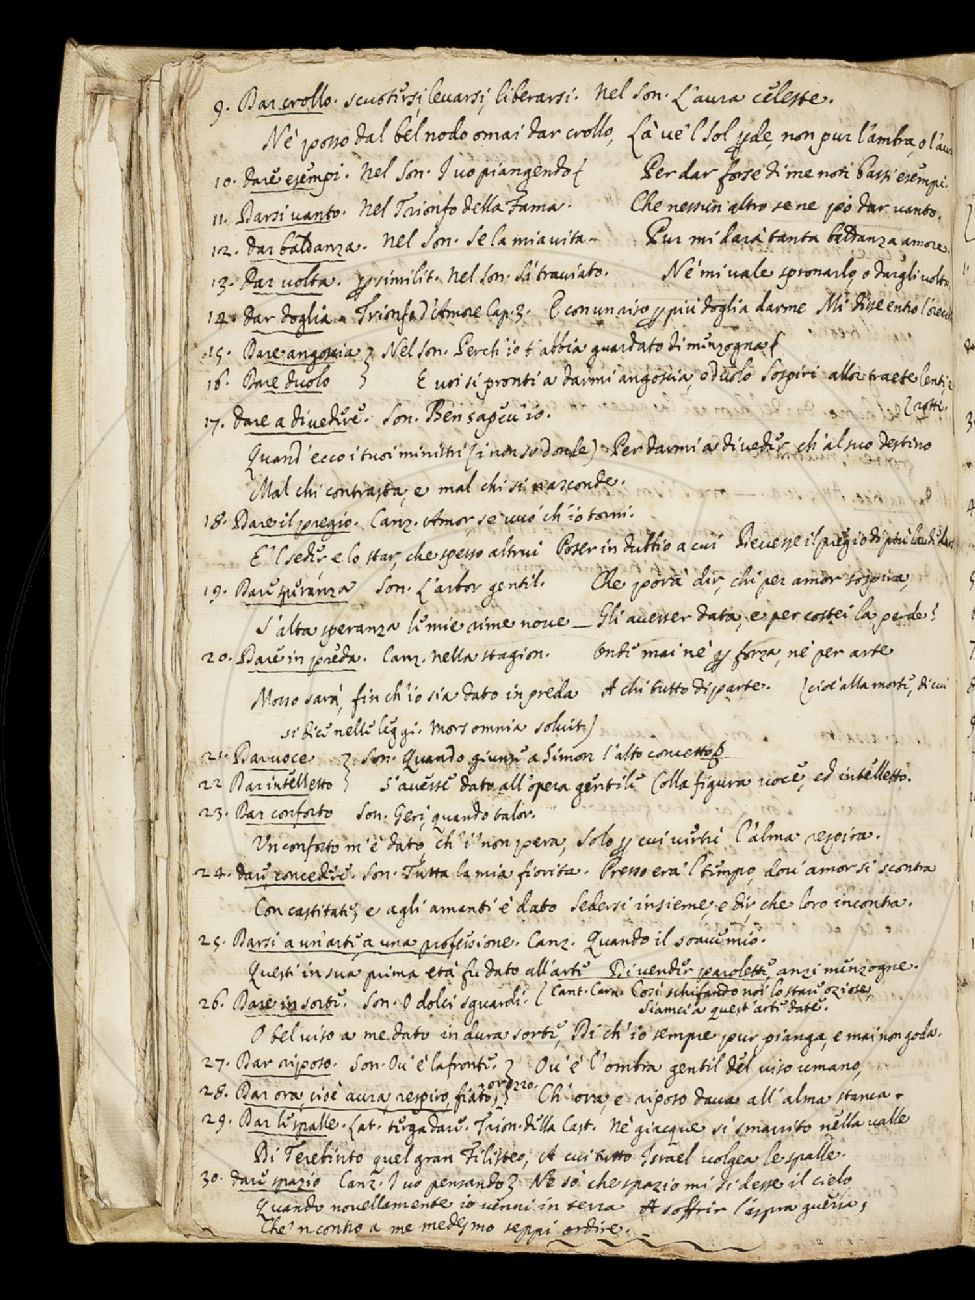 9. Dar crollo. scuotersi, levarsi, liberarsi. Nel Son. L'aura celeste.
Nè posso dal bel nodo omai dar crollo, Là ve 'l Sol perde, non pur l'ambra, o l'au
10. dare esempi. Nel Son. I vo piangendo Per dar forse di me non bassi esempi.
11. Darsi vanto. Nel Trionfo della Fama. Che nessun altro se ne pò dar vanto.
12. dar baldanza. Nel Son. Se la mia vita - Pur mi darà tanta baldanza amore
13. Dar volta. per similit. Nel Son. Sì traviato. Nè mi vale spronarlo, o dargli volta
14. dar doglia. Trionfo d'Amore Cap. 3. E con un riso per più doglia darme Mi disse entro l'orecch
15. Dare angoscia } Nel Son. Perch'io t'abbia guardato di menzogna
16. Dare duolo } E voi sì pronti a darmi angoscia, o duolo Sospiri allor traete lenti, e
rotti.
17. dare a divedere. Son. Ben sapev'io.
Quand'ecco i tuoi ministri (i non so donde) Per darmi a diveder, ch'al suo destino
Mal chi contrasta, e mal chi si nasconde.
18. Dare il pregio. Canz. Amor, se vuo' ch'io torni.
E 'l seder, e lo star, che spesso altrui Poser in dubbio a cui Devesse il pregio di più laude dar
19. Dare speranza Son. L'arbor gentil. Che porà dir, chi per amor sospira,
S'alta speranza le mie rime nove _ Gli avesser data, e per costei la perde!
20. Dare in preda. Canz. Nella stagion. Onde mai nè per forza, nè per arte
Mosso sarà, fin ch'io sia dato in preda A chi tutto diparte. (cioè alla morte, di cui
si dice nelle leggi. Mors omnia solvit)
21. Dar voce } Son. Quando giunse a Simon l'alto concetto
22 Dar intelletto } S'avesse dato all'opera gentile Colla figura voce, ed intelletto.
23. Dar conforto Son. Geri, quando talor.
Un conforto m'è dato, ch'i' non pera, Solo per cui virtù l'alma respira.
24. dare, concedere. Son. Tutta la mia fiorita. Presso era 'l tempo, dov'amor si scontra
Con castitate, e agli amanti è dato Sedersi insieme, e dir, che loro incontra.
25. Darsi a un'arte a una professione. Canz. Quando il soave mio.
Questi in sua prima età fu dato all'arte Di vender parolette, anzi menzogne.
26. Dare in sorte. Son. O dolci sguardi. (Cant. Carn. Così schifando noi lo stare oziose,
Siamci a quest'arte date.
O bel viso a me dato in dura sorte, Di ch'io sempre pur pianga, e mai non goda.
27. Dar riposo. Son. Ov'è la fronte. } Ov'è l'ombra gentil del viso umano,
28. Dar ora, cioè aura, respiro, fiato, orezzo. } Ch'ora, e riposo dava all'alma stanca.
29. Dar le spalle. Lat. terga dare. Trion. della Cast. Nè giacque sì smarrito nella valle
Di Terebinto quel gran Filisteo, A cui tutto Israel volgea le spalle.
30. dare spazio Canz. I vo pensando Nè so che spazio mi si desse il cielo
Quando novellamente io venni in terra A soffrir l'aspra guerra,
Che 'ncontro a me medesmo seppi ordire.